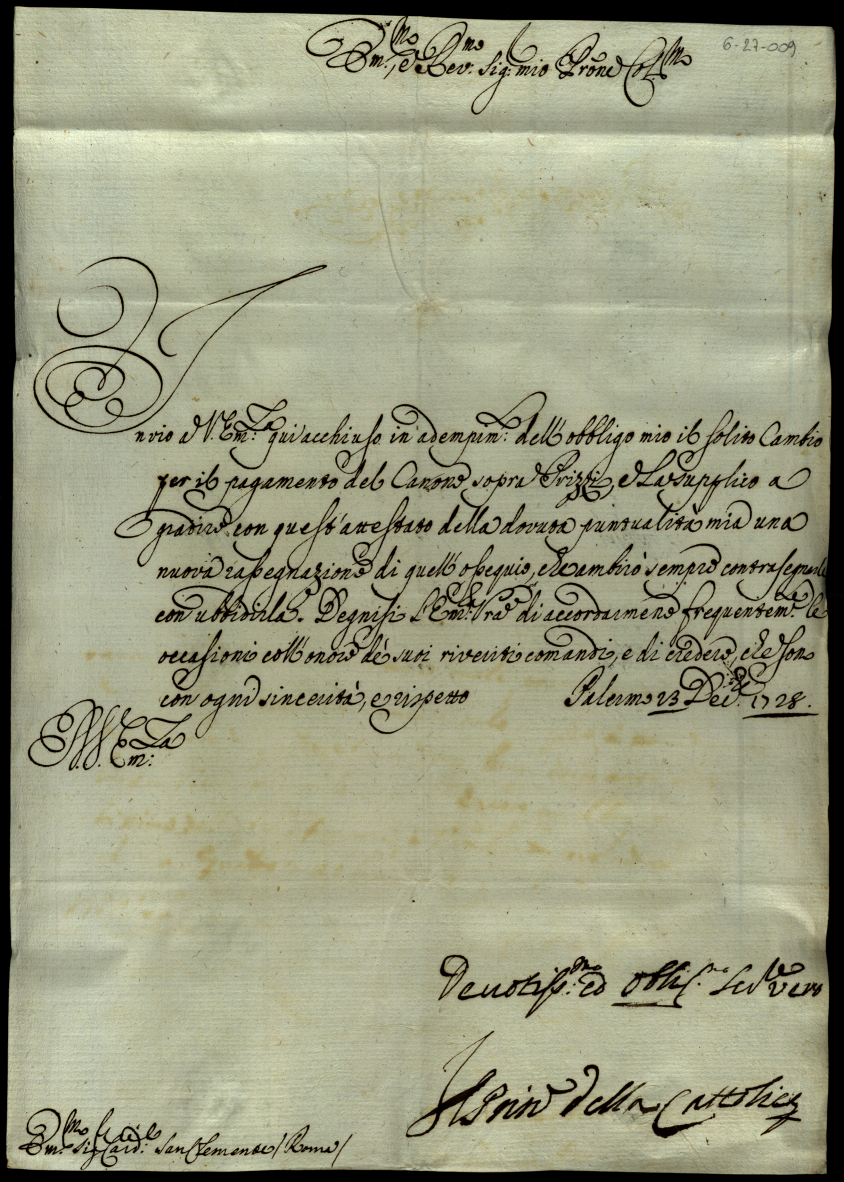 6-27-009
Em.mo, e Rev.mo Sig.r mio P̃rone Col.mo
Invio a V. Em.za qui acchiuso in adempim.to dell'obbligo mio il solito Cambio
per il pagamento del Canone sopra Prizzi, e La supplico a
gradire con quest'attestato della dovuta puntualità mia una
nuova rassegnazione di quell'ossequio, che ambirò sempre contrasegnarle
con ubbidirla. Degnisi l'Em.za Vra di accordarmene frequentem.te le
occasioni coll'onore de' suoi riveriti comandi, e di credere, che sono
con ogni sincerità, e rispetto Palermo 23 Dec.bre 1728.
D. V. Em.za
Devotiss.mo ed obblig.mo Ser.re vero
Il Prin.e della Cattolica
Em.mo Sig.r Card.le San Clemente / Roma /